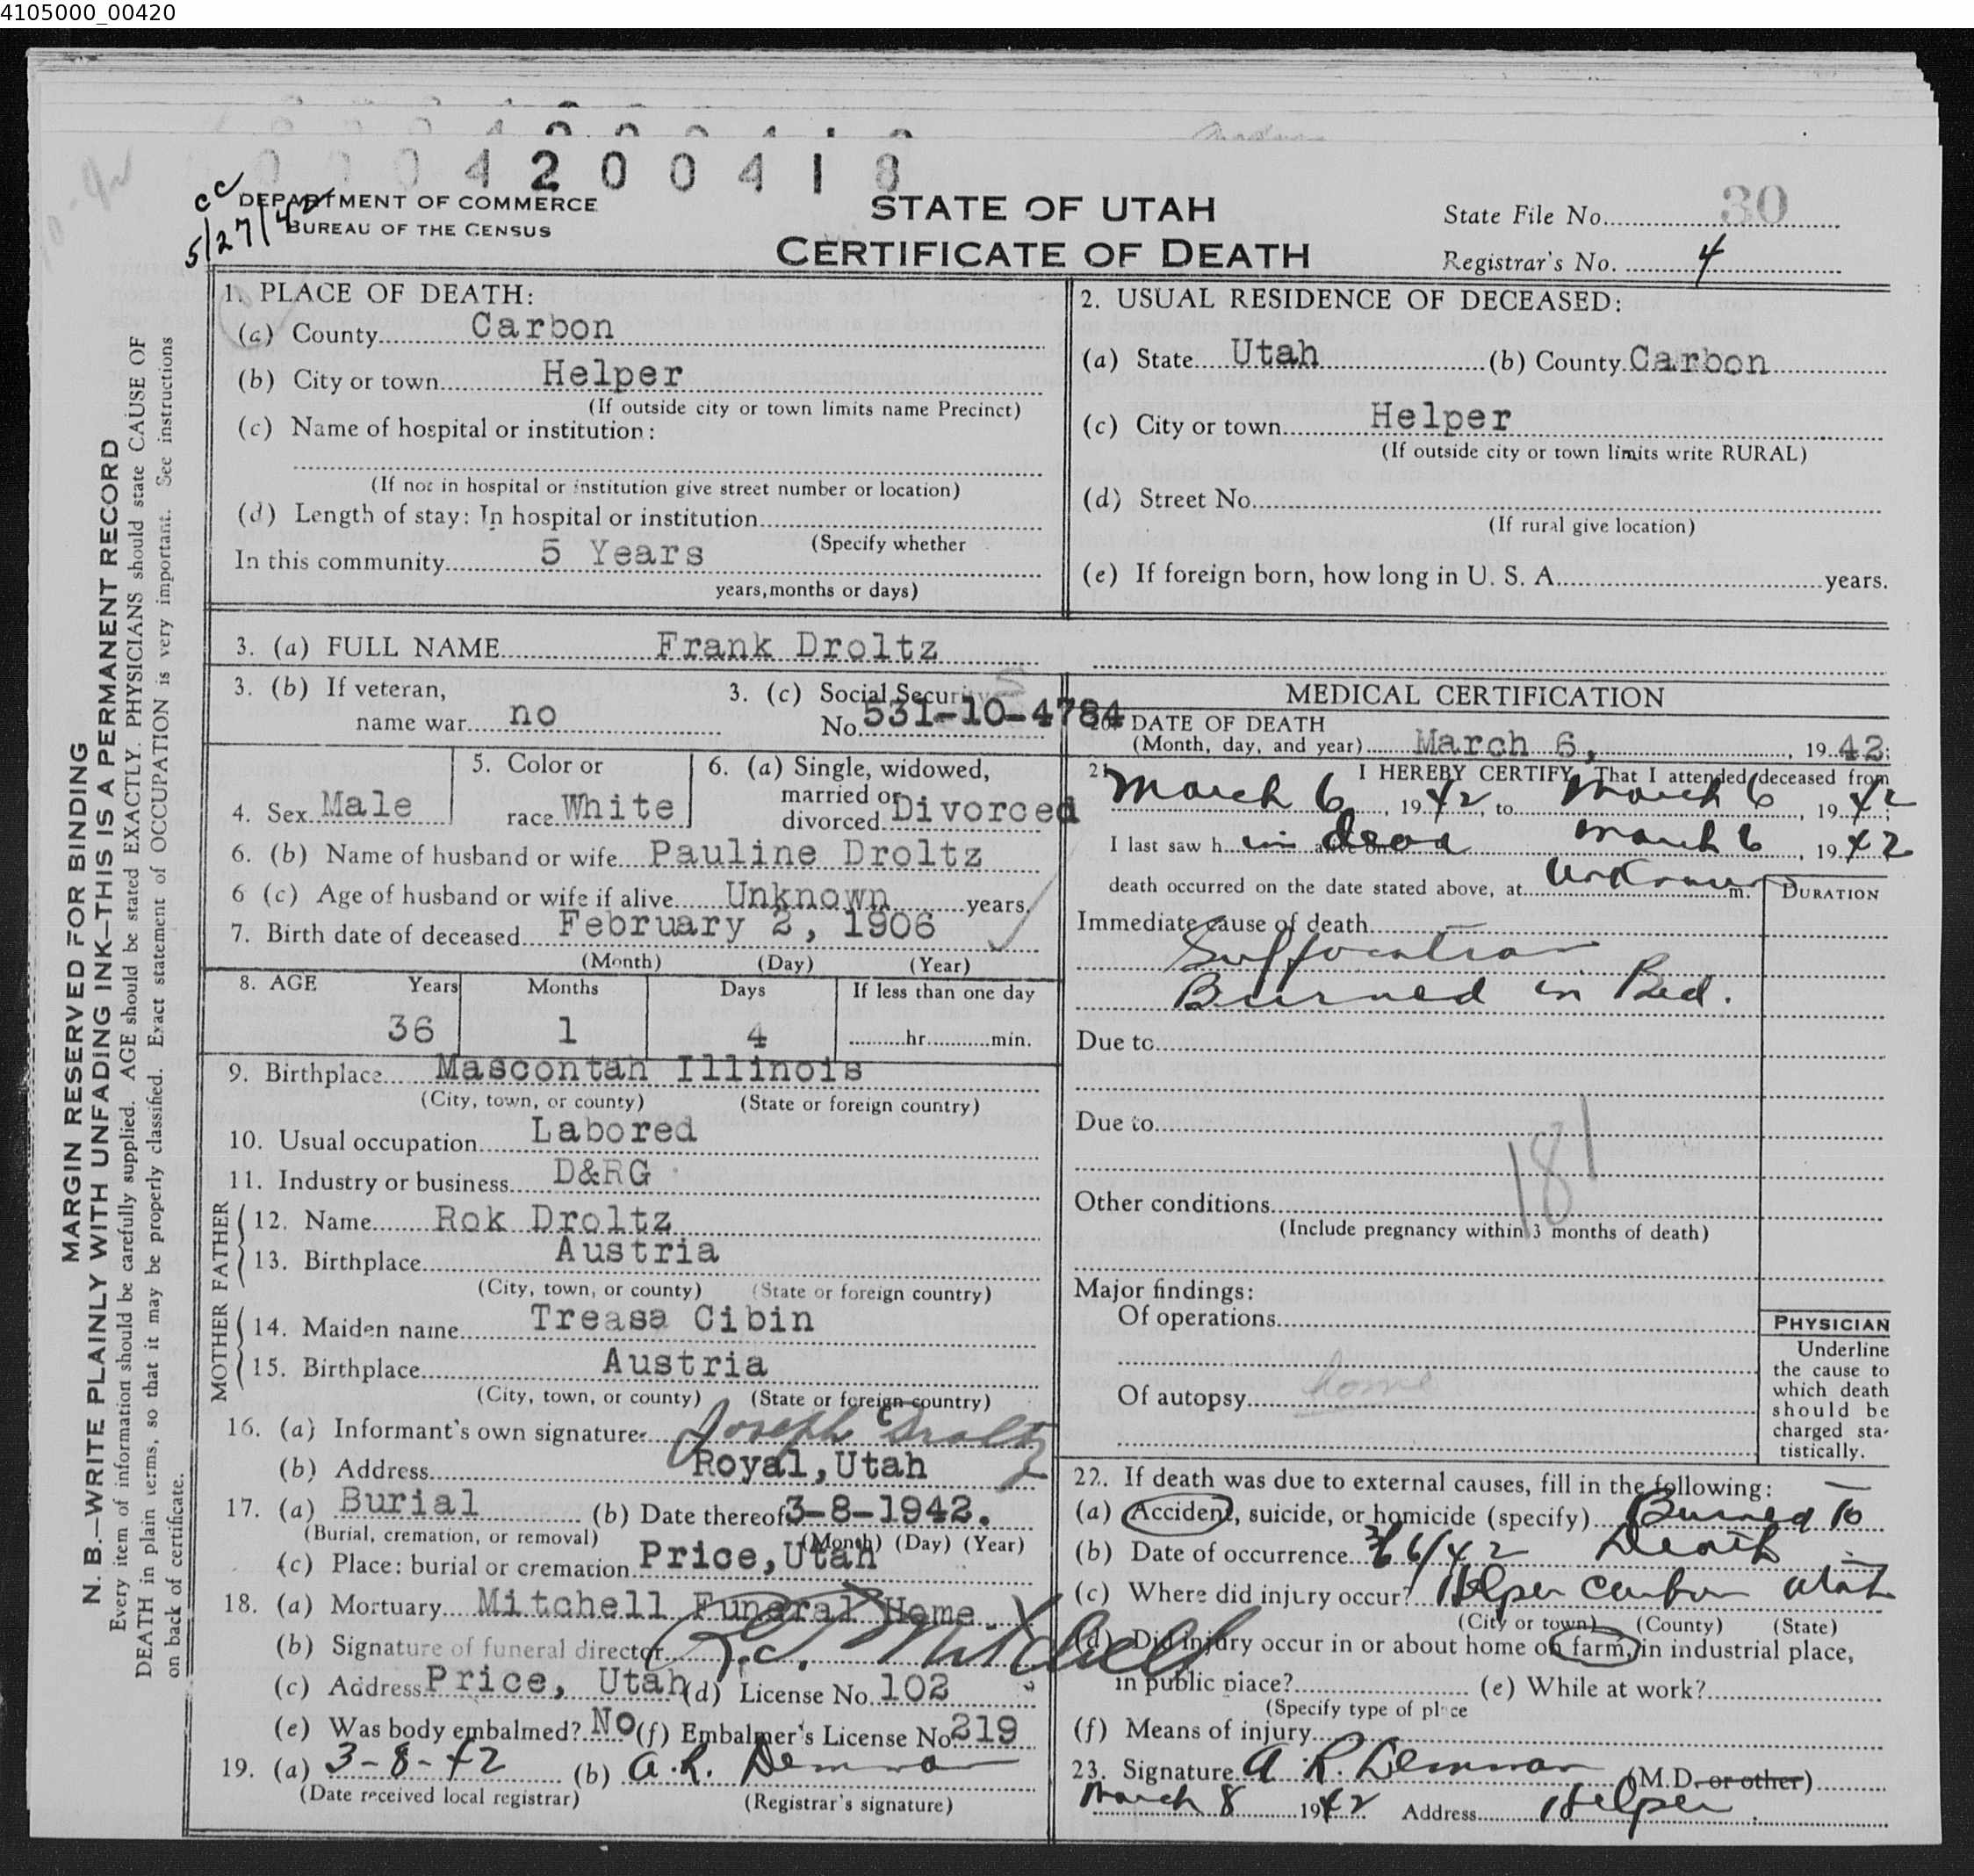 4105000_00420
0 0 0 4 2 0 0 4 1 8
cc
5/27/42
DEPARTMENT OF COMMERCE
BUREAU OF THE CENSUS
STATE OF UTAH
CERTIFICATE OF DEATH
State File No. 30
Registrar's No. 4
MARGIN RESERVED FOR BINDING
N. B.—WRITE PLAINLY WITH UNFADING INK—THIS IS A PERMANENT RECORD
Every item of information should be carefully supplied. AGE should be stated EXACTLY. PHYSICIANS should state CAUSE OF
DEATH in plain terms, so that it may be properly classified. Exact statement of OCCUPATION is very important. See instructions
on back of certificate.
1. PLACE OF DEATH:
(a) County Carbon
(b) City or town Helper
(If outside city or town limits name Precinct)
(c) Name of hospital or institution:
(If not in hospital or institution give street number or location)
(d) Length of stay: In hospital or institution
(Specify whether
In this community 5 Years
years, months or days)
2. USUAL RESIDENCE OF DECEASED:
(a) State Utah (b) County Carbon
(c) City or town Helper
(If outside city or town limits write RURAL)
(d) Street No.
(If rural give location)
(e) If foreign born, how long in U. S. A. years.
3. (a) FULL NAME Frank Droltz
3. (b) If veteran,
name war no
3. (c) Social Security
No. 531-10-4784
4. Sex Male
5. Color or
race White
6. (a) Single, widowed,
married or
divorced Divorced
6. (b) Name of husband or wife Pauline Droltz
6 (c) Age of husband or wife if alive Unknown years.
7. Birth date of deceased February 2, 1906
(Month) (Day) (Year)
8. AGE Years Months Days If less than one day
36 1 4 hr. min.
9. Birthplace Mascontah Illinois
(City, town, or county) (State or foreign country)
10. Usual occupation Labored
11. Industry or business D&RG
FATHER
12. Name Rok Droltz
13. Birthplace Austria
(City, town, or county) (State or foreign country)
MOTHER
14. Maiden name Treasa Cibin
15. Birthplace Austria
(City, town, or county) (State or foreign country)
16. (a) Informant's own signature Joseph Droltz
(b) Address Royal, Utah
17. (a) Burial (b) Date thereof 3-8-1942.
(Burial, cremation, or removal) (Month) (Day) (Year)
(c) Place: burial or cremation Price, Utah
18. (a) Mortuary Mitchell Funeral Home
(b) Signature of funeral director Mitchell
(c) Address Price, Utah (d) License No. 102
(e) Was body embalmed? No (f) Embalmer's License No. 219
19. (a) 3-8-42 (b) A. R. Demman
(Date received local registrar) (Registrar's signature)
MEDICAL CERTIFICATION
20. DATE OF DEATH
(Month, day, and year) March 6, 1942;
21. I HEREBY CERTIFY, That I attended deceased from
March 6, 1942, to March 6, 1942;
I last saw h im alive on dead March 6, 1942
death occurred on the date stated above, at unknown m.
DURATION
Immediate cause of death
Suffocation
Burned in Bed.
Due to
Due to
181
Other conditions
(Include pregnancy within 3 months of death)
Major findings:
Of operations
Of autopsy
PHYSICIAN
Underline
the cause to
which death
should be
charged sta-
tistically.
22. If death was due to external causes, fill in the following:
(a) Accident, suicide, or homicide (specify) Burned To
(b) Date of occurrence 3/6/42 Death
(c) Where did injury occur? Helper Carbon Utah
(City or town) (County) (State)
(d) Did injury occur in or about home on farm, in industrial place,
in public place? (e) While at work?
(Specify type of place
(f) Means of injury
23. Signature A. R. Demman (M.D. or other)
March 8 1942 Address Helper